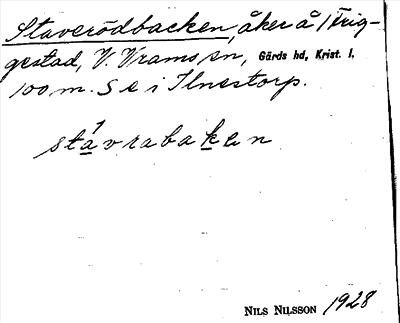 Staverödbacken, åker å 1 Trig-
gestad, V. Vrams sn, Gärds hd, Krist. l.
100 m. S e i Ilnestorp.
stavrabaken
NILS NILSSON 1928